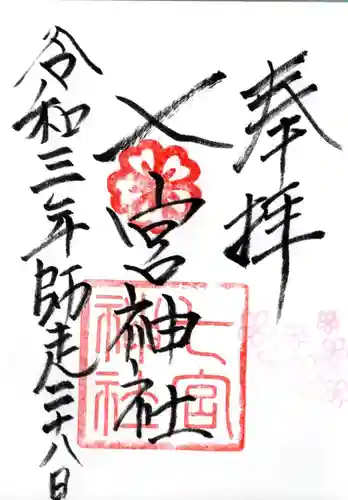 奉拝
七宮神社
七宮神社
令和三年師走二十八日